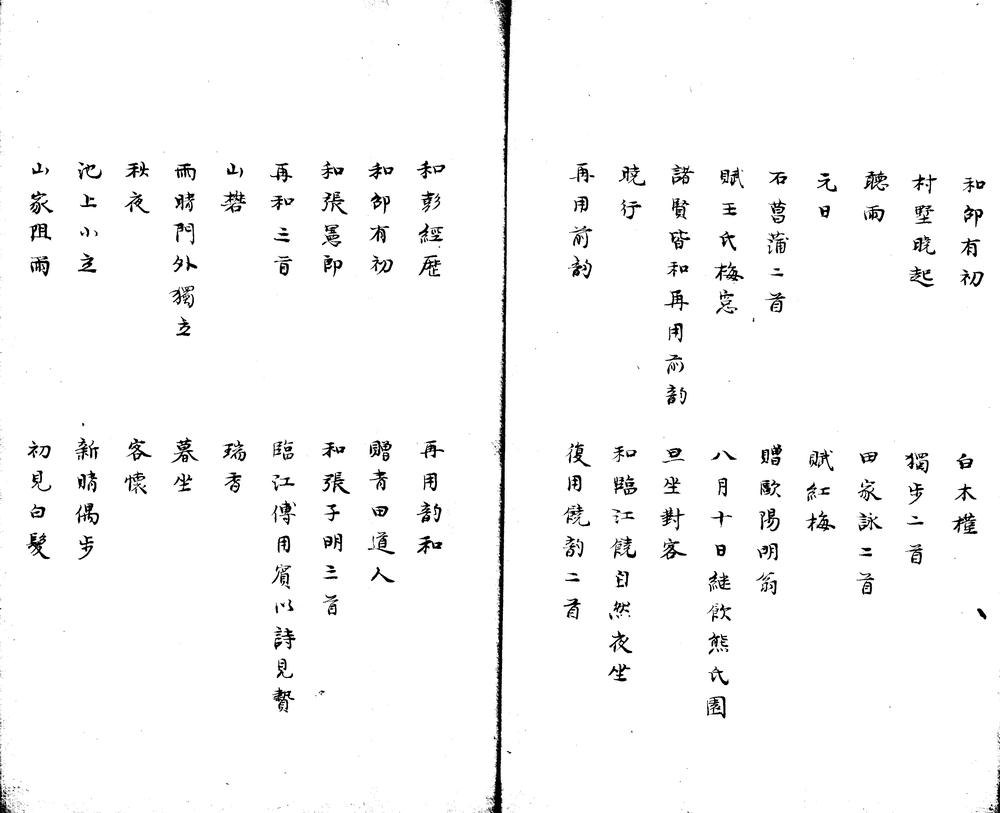 和邵有初
白木槿
村墅曉起
獨步二首
聽雨
田家詠二首
元日
賦紅梅
石菖蒲二首
贈歐陽明翁
賦王氏梅窓
八月十日繼飲熊氏園
諸賢皆和再用前韵
旦坐對客
曉行
和臨江饒自然夜坐
再用前韵
復用饒韵二首
和彭經歷
再用韵和
和邵有初
贈青田道人
和張愚郎
和張子明三首
再和三首
臨江傅用賓以詩見贄
山礬
瑞香
雨晴門外獨立
暮坐
秋夜
客懷
池上小立
新晴偶步
山家阻雨
初見白髮